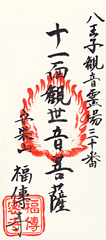 八王子観音霊場三十番
十一面観世音菩薩
福傳寺
福傳